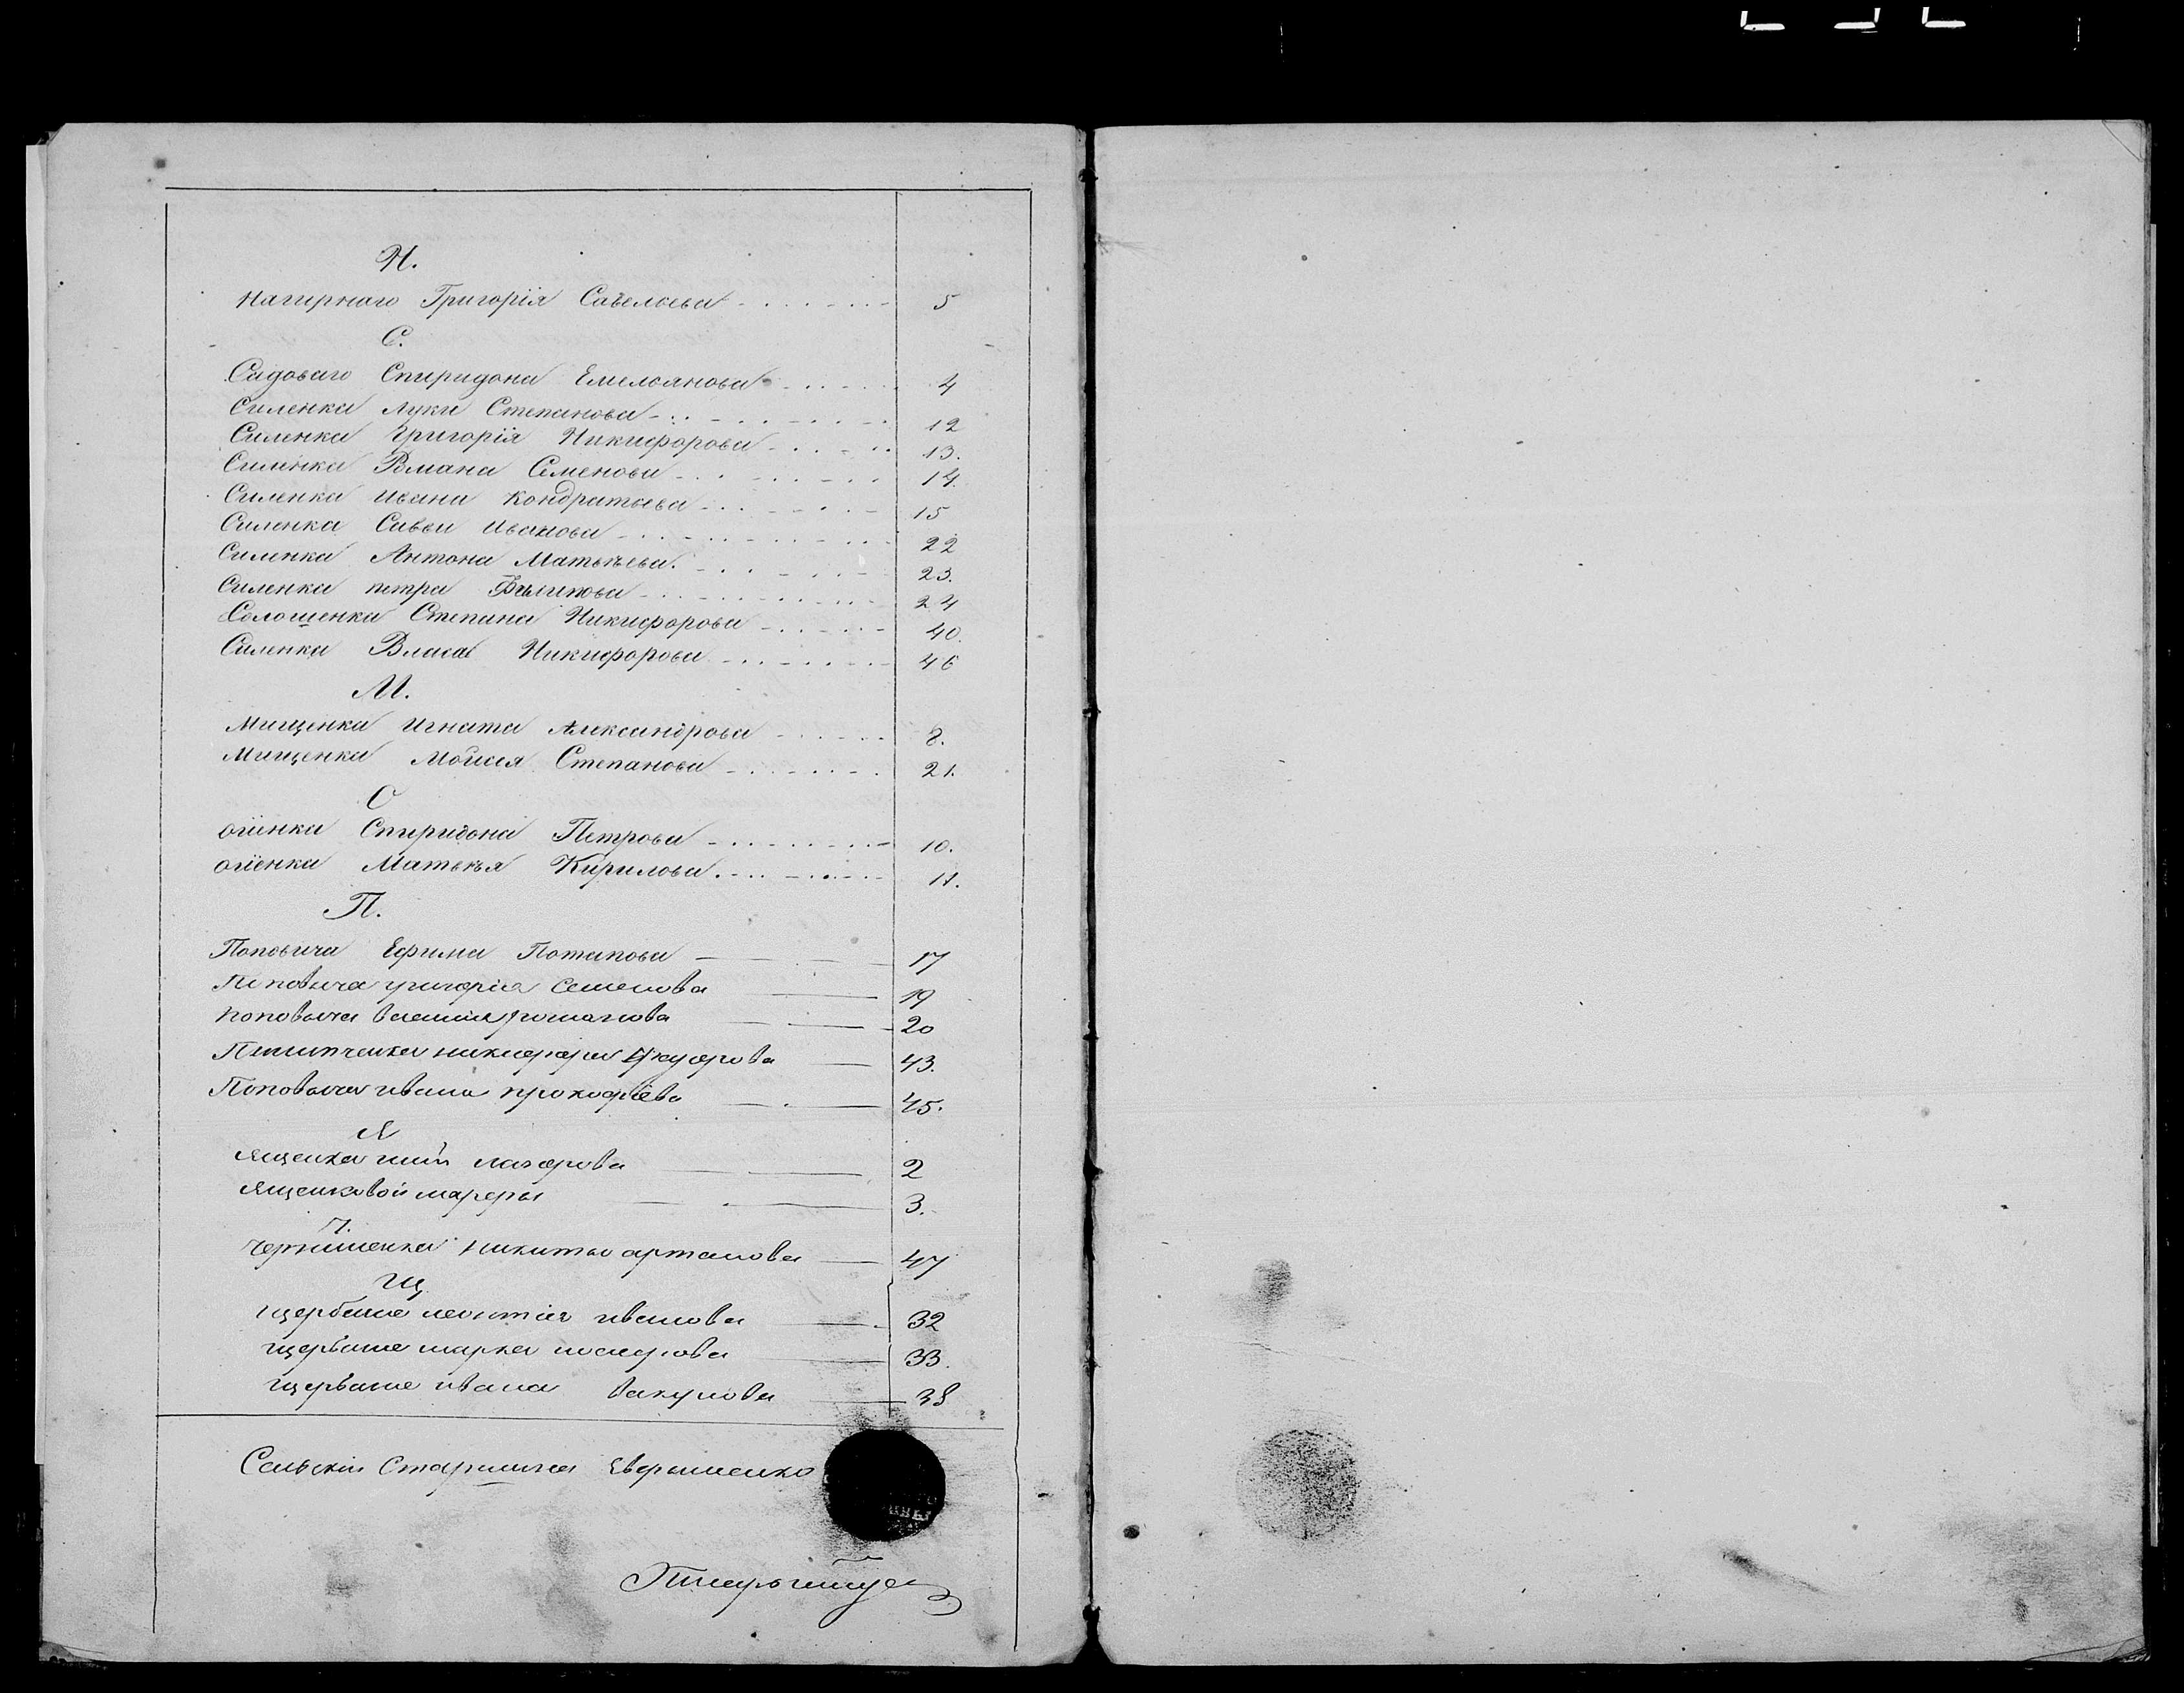 Н.
Нагирнаго Григорія Савельева 5
С.
Садоваго Спиридона Емельянова 4
Силенка Луки Степанова 12
Силенка Григорія Никифорова 13.
Силенка Романа Семенова 14.
Силенка Ивана Кондратьева 15
Силенка Саввы Иванова 22
Силенка Антона Матвѣева. 23.
Силенка Петра 24
Солошенка Степана Никифорова 40.
Силенка Власа Никифорова 46
М.
Мищенка Игната Александрова 8.
Мищенка Мойсея Степанова 21.
О
Огіенка Спиридона Петрова 10.
Огіенка Матвѣя Кирилова. 11.
П.
Поповича Ефима Потапова 17
Поповича григорія Семенова 19
Поповича романова 20
Пилипченка никифора 43.
Поповича ивана прокофіева 45.
Я
Ященка лазорова 2
Ященковой 3.
Ч.
Чернишенка никиты артамова 47
Щ
щербаня леонтія иванова 32
щербаня марка 33.
щербаня ивана вакулова 38
Сельскій Старшина